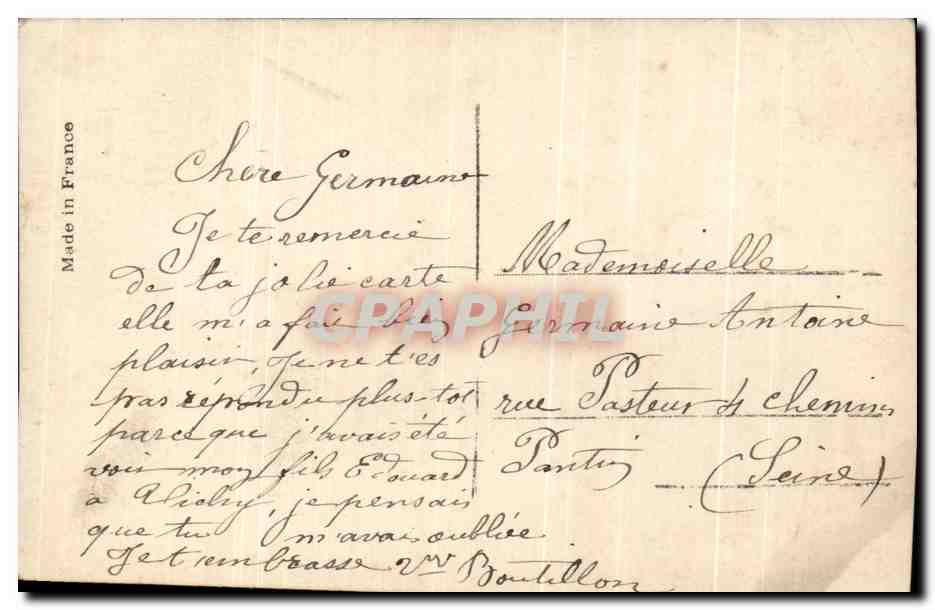 Made in France
Chère Germaine
Je te remercie
de ta jolie carte
elle m'a fai bien
plaisir, Je ne t'es
pas répondu plus tot
parceque j'avais été
voir mon fils Edouard
a Vichy, je pensais
que tu m'avais oubliée
Je t'embrasse Vve Boutillon
Mademoiselle
Germaine Antoine
rue Pasteur 4 chemins
Pantin
(Seine)
CPAPHIL